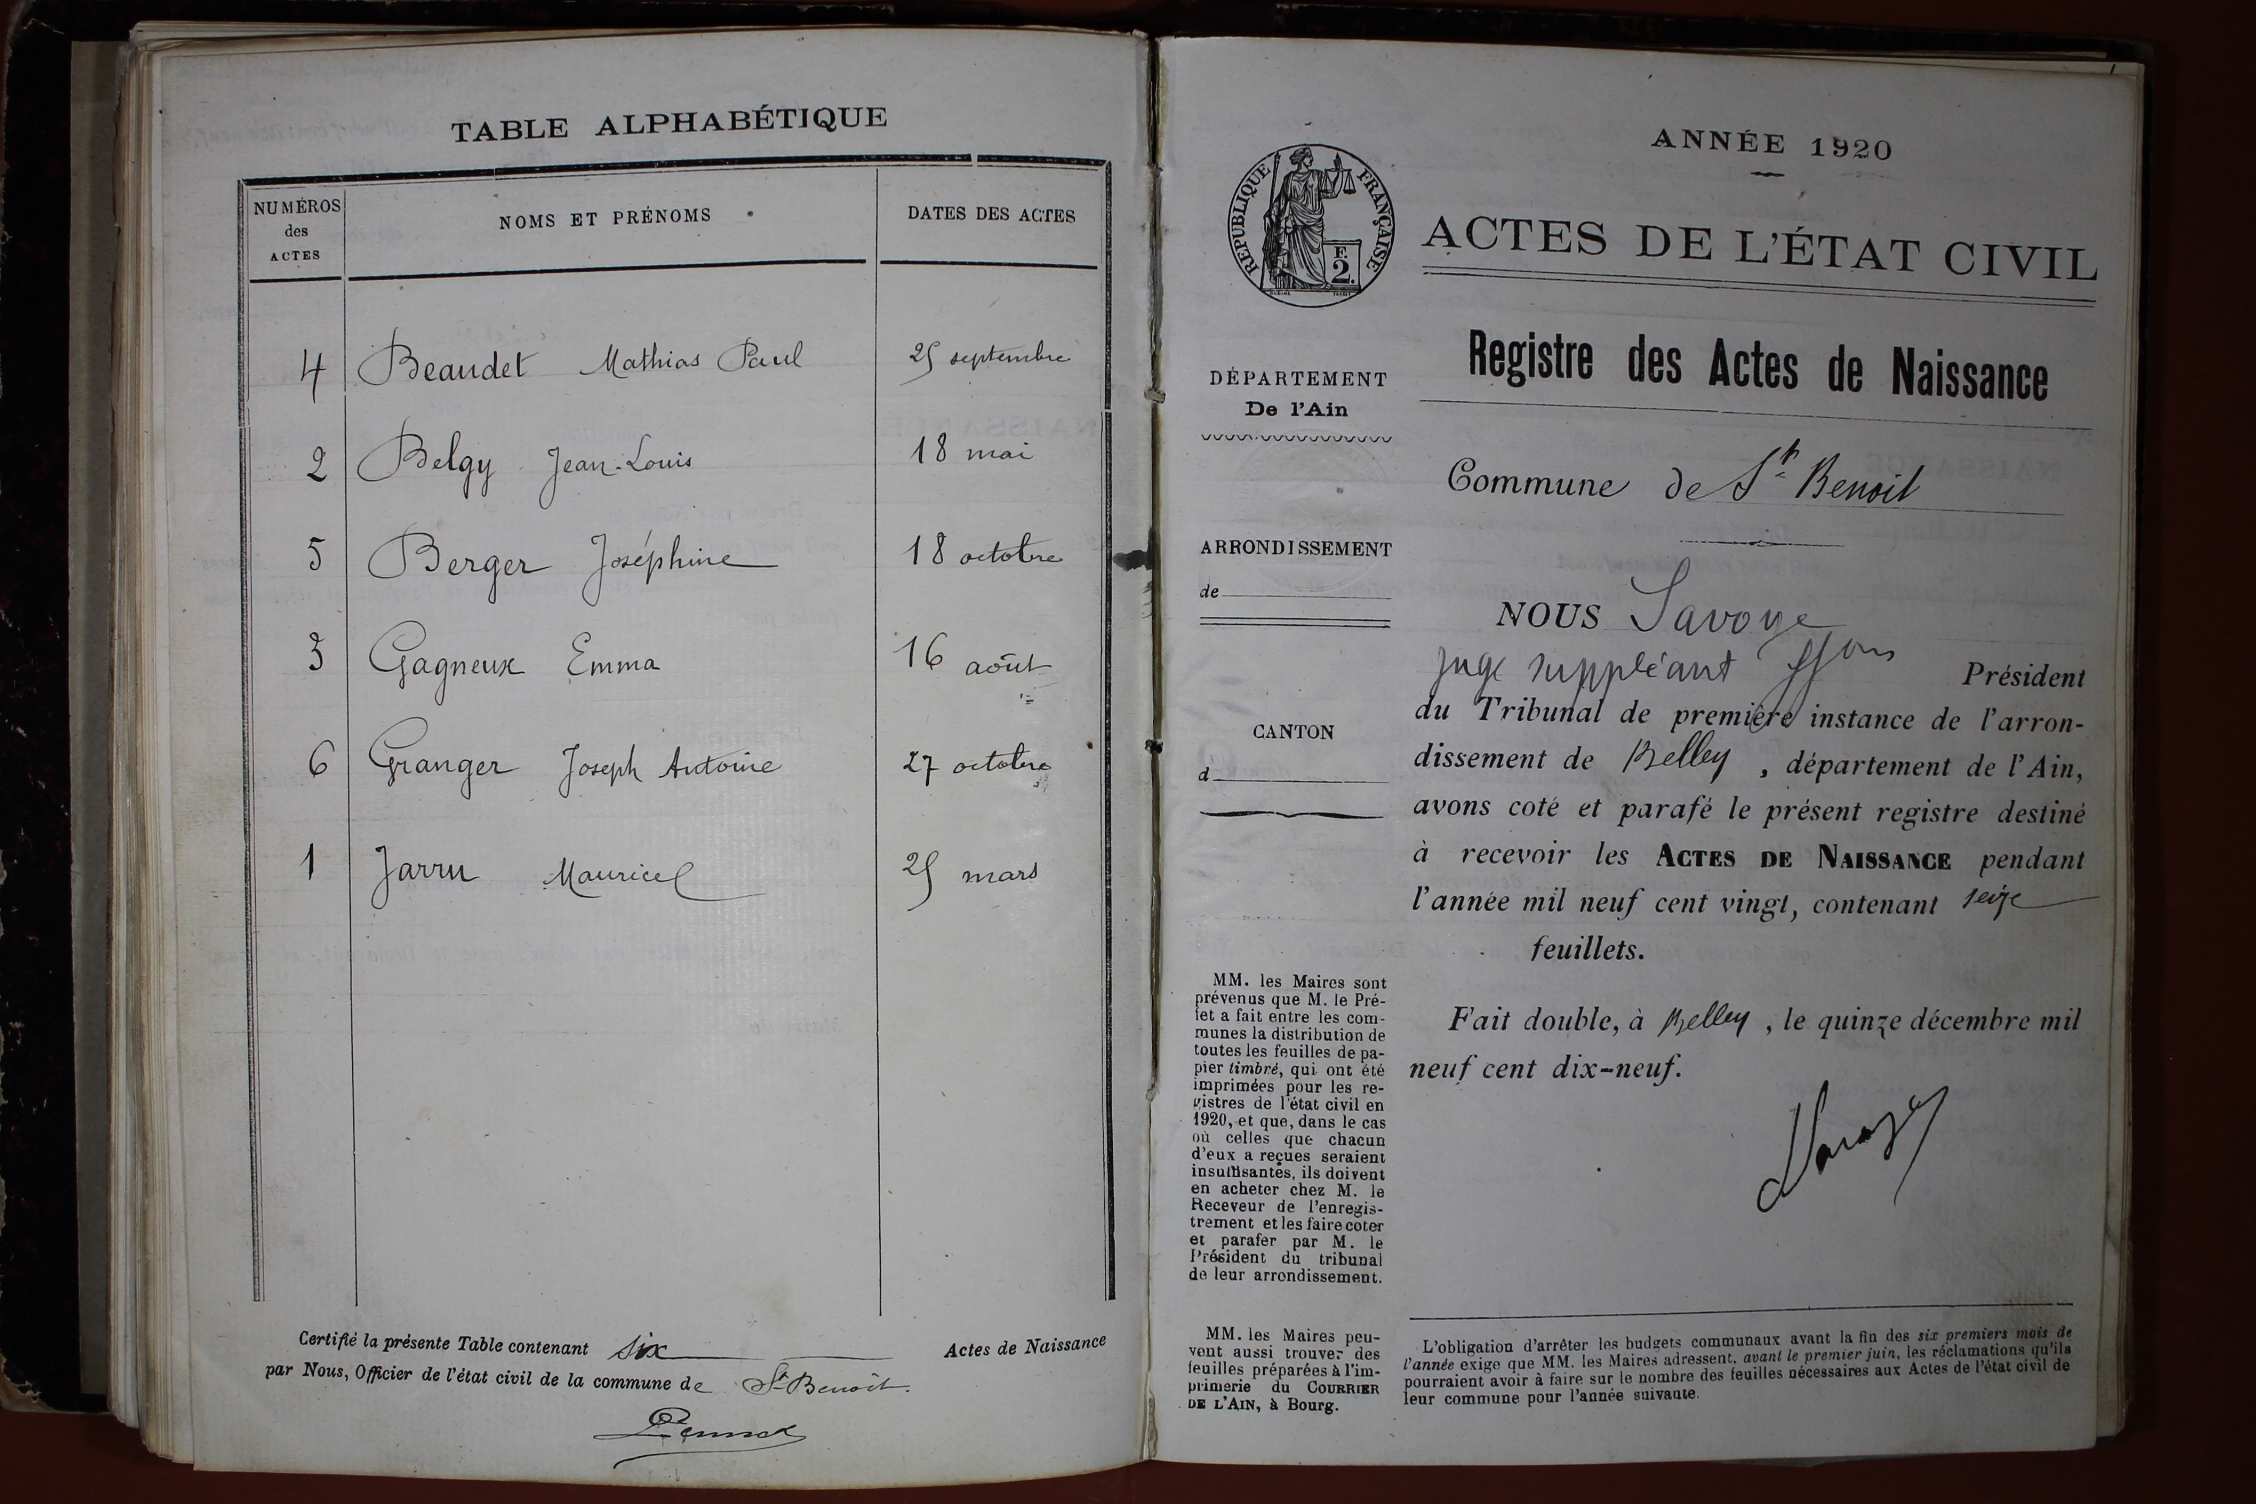 TABLE ALPHABÉTIQUE
NUMÉROS des ACTES
NOMS ET PRÉNOMS
DATES DES ACTES
4 Beaudet Mathias Paul 25 septembre
2 Belgy Jean-Louis 18 mai
5 Berger Joséphine 18 octobre
3 Gagneux Emma 16 août
6 Granger Joseph Antoine 27 octobre
1 Jarru Maurice 25 mars
Certifié la présente Table contenant six Actes de Naissance
par Nous, Officier de l'état civil de la commune de St Benoit.
ANNÉE 1920
REPUBLIQUE FRANÇAISE
F.
2.
ACTES DE L'ÉTAT CIVIL
Registre des Actes de Naissance
DÉPARTEMENT
De l'Ain
ARRONDISSEMENT
de
CANTON
d
MM. les Maires sont
prévenus que M. le Pré-
fet a fait entre les com-
munes la distribution de
toutes les feuilles de pa-
pier timbré, qui ont été
imprimées pour les re-
gistres de l'état civil en
1920, et que, dans le cas
où celles que chacun
d'eux a reçues seraient
insuffisantes, ils doivent
en acheter chez M. le
Receveur de l'enregis-
trement et les faire coter
et parafer par M. le
Président du tribunal
de leur arrondissement.
MM. les Maires peu-
vent aussi trouver des
feuilles préparées à l'im-
primerie du COURRIER
DE L'AIN, à Bourg.
Commune de St Benoit
NOUS Savoye
juge suppléant ffons Président
du Tribunal de première instance de l'arron-
dissement de Belley, département de l'Ain,
avons coté et parafé le présent registre destiné
à recevoir les ACTES DE NAISSANCE pendant
l'année mil neuf cent vingt, contenant seize
feuillets.
Fait double, à Belley, le quinze décembre mil
neuf cent dix-neuf.
L'obligation d'arrêter les budgets communaux avant la fin des six premiers mois de
l'année exige que MM. les Maires adressent, avant le premier juin, les réclamations qu'ils
pourraient avoir à faire sur le nombre des feuilles nécessaires aux Actes de l'état civil de
leur commune pour l'année suivante.